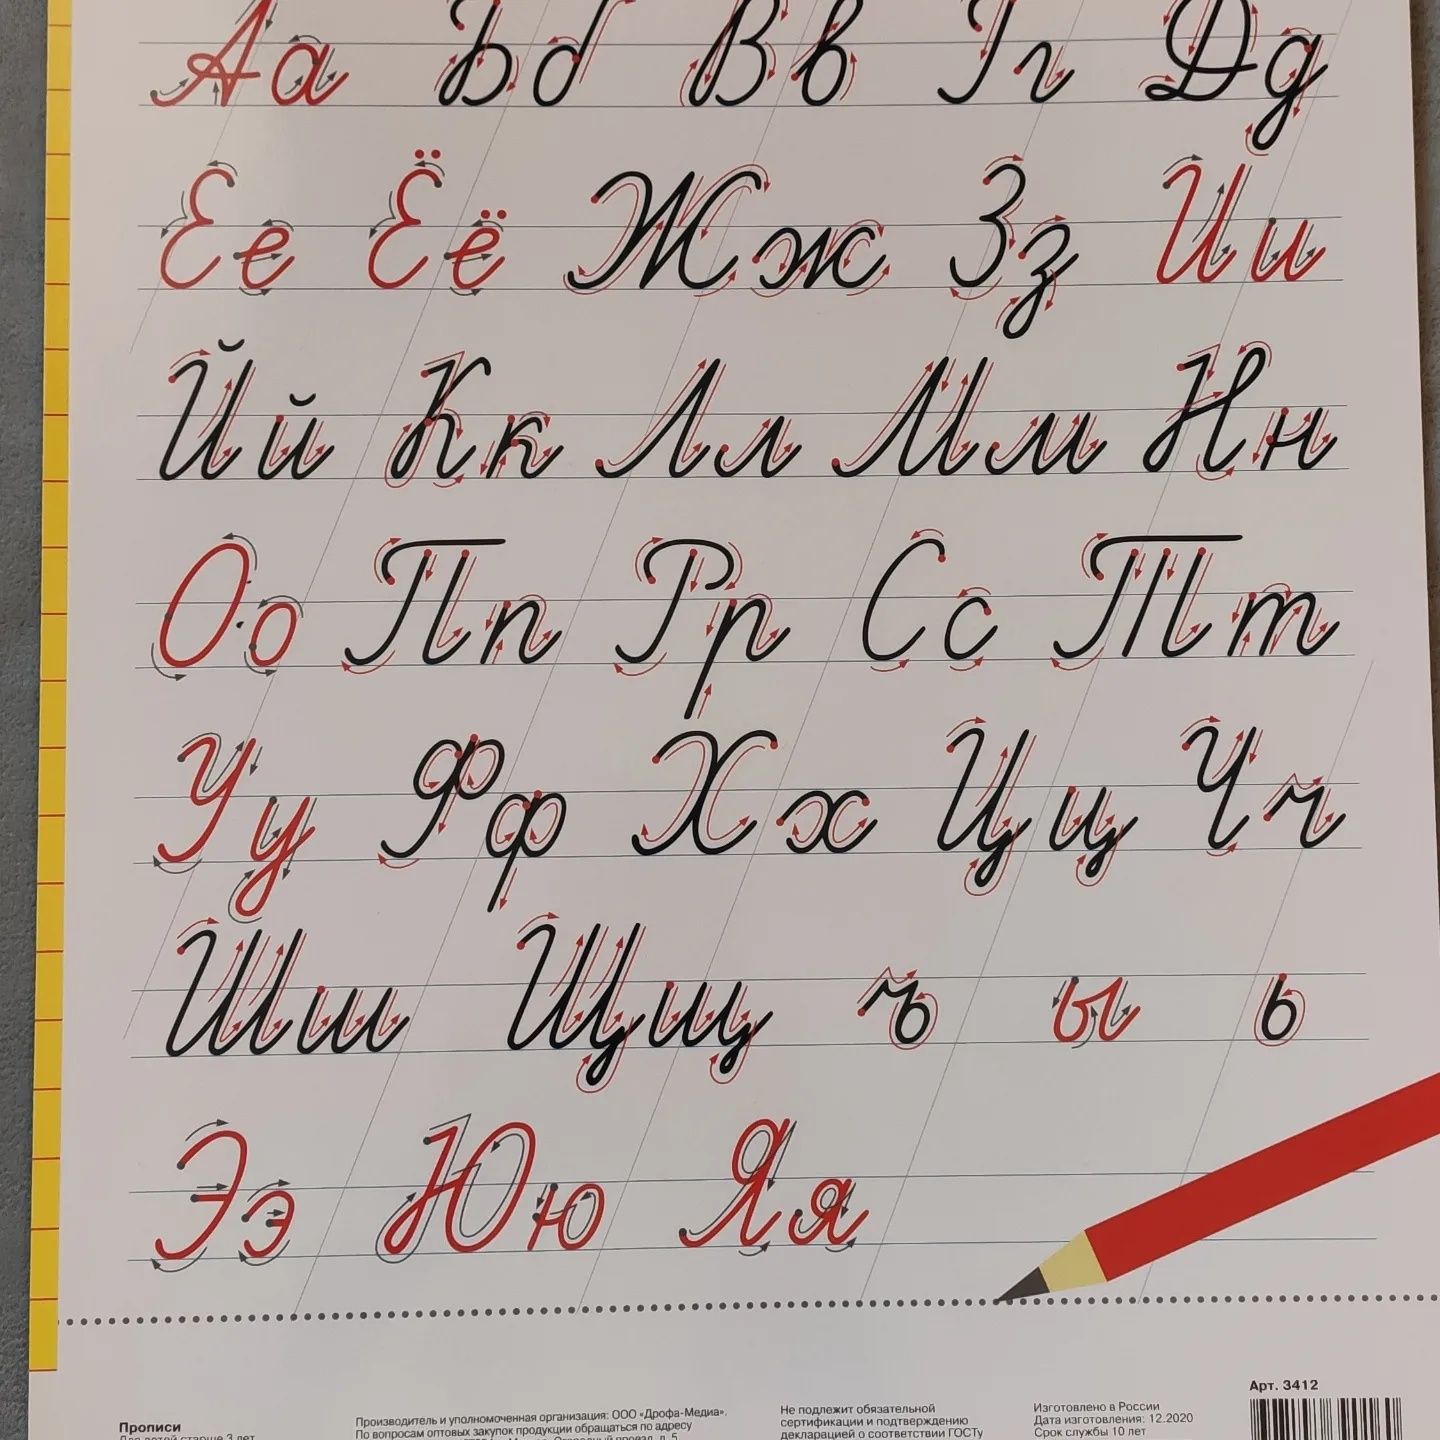 Аа Бб Вв Гг Дд
Ее Ёё Жж Зз Ии
Йй Кк Лл Мм Нн
Оо Пп Рр Сс Тт
Уу Фф Хх Цц Чч
Шш Щщ ъ ы ь
Ээ Юю Яя
Арт. 3412
Прописи
Для детей старше 3 лет
Производитель и уполномоченная организация: ООО «Дрофа-Медиа».
По вопросам оптовых закупок продукции обращаться по адресу
Не подлежит обязательной
сертификации и подтверждению
декларацией о соответствии ГОСТу
Изготовлено в России
Дата изготовления: 12.2020
Срок службы 10 лет